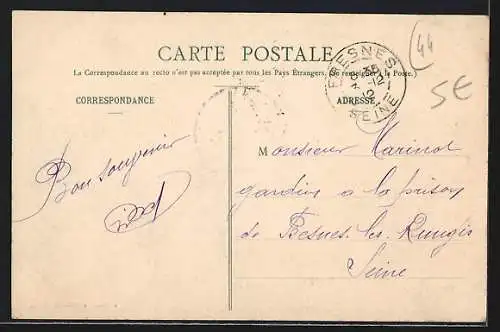 CARTE POSTALE
(La Correspondance au recto n'est pas acceptée par tous les Pays Étrangers. Se renseigner à la Poste.)
CORRESPONDANCE
ADRESSE
FRESNES
SEINE
44
5€
Bon souvenir
Monsieur Marinot
gardien a la prison
de Fresnes les Rungis
Seine